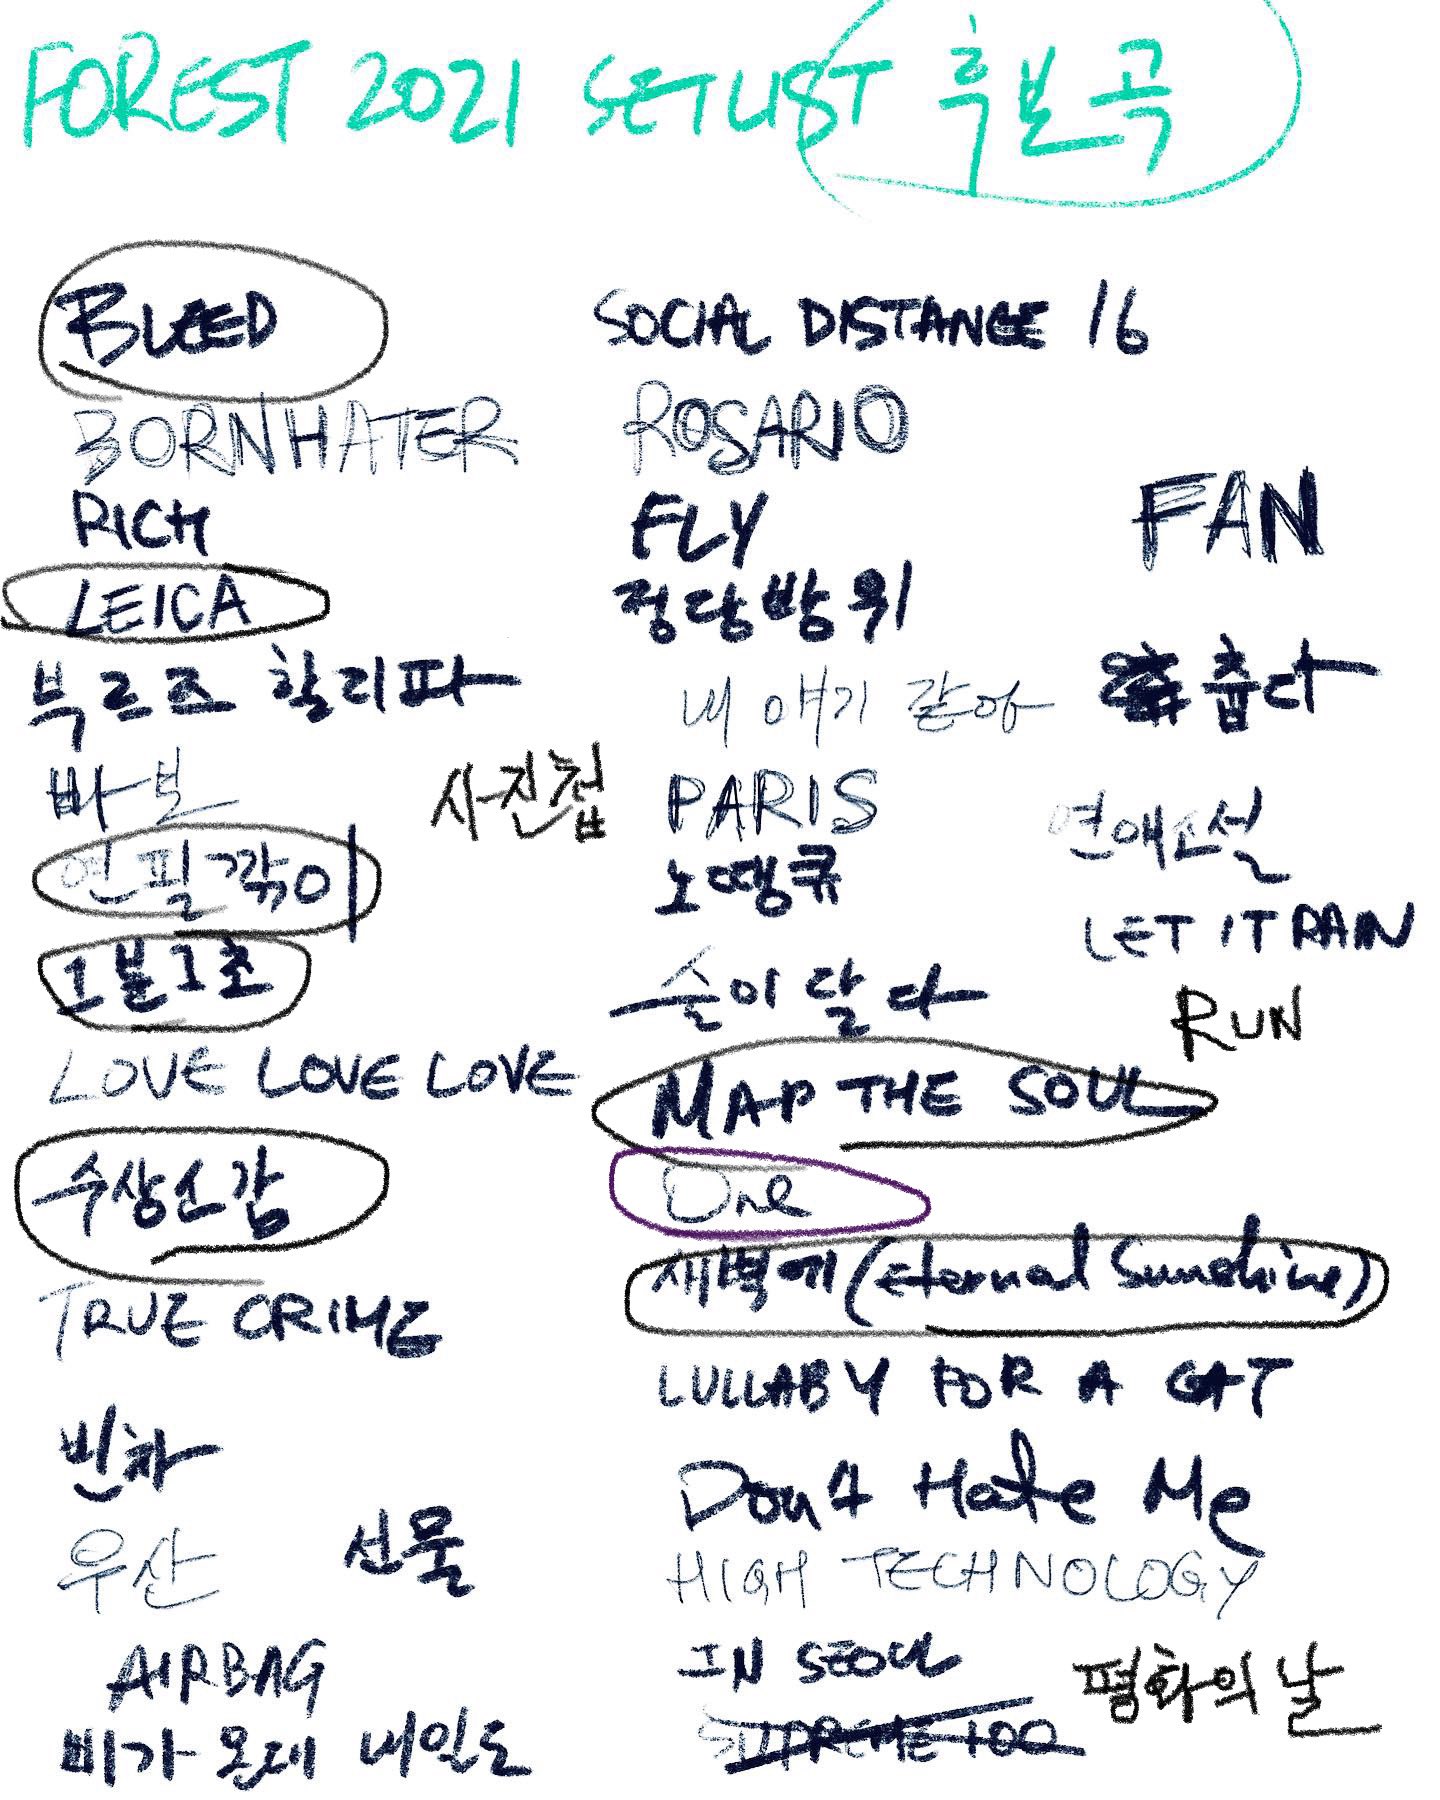 FOREST 2021 SETLIST 후보곡
BLEED
BORNHATER
RICH
LEICA
부르즈 할리파
바보
사진첩
연필깎이
1분1초
LOVE LOVE LOVE
수상소감
TRUE CRIME
빈차
우산
선물
AIRBAG
비가 온대 내일도
SOCIAL DISTANCE 16
ROSARIO
FLY
정당방위
내 얘기 같아
PARIS
노땡큐
술이 달다
MAP THE SOUL
One
새벽에 (Eternal Sunshine)
LULLABY FOR A CAT
Don't Hate Me
HIGH TECHNOLOGY
IN SEOUL
SUPREME 100
FAN
춥다
연애소설
LET IT RAIN
RUN
평화의 날